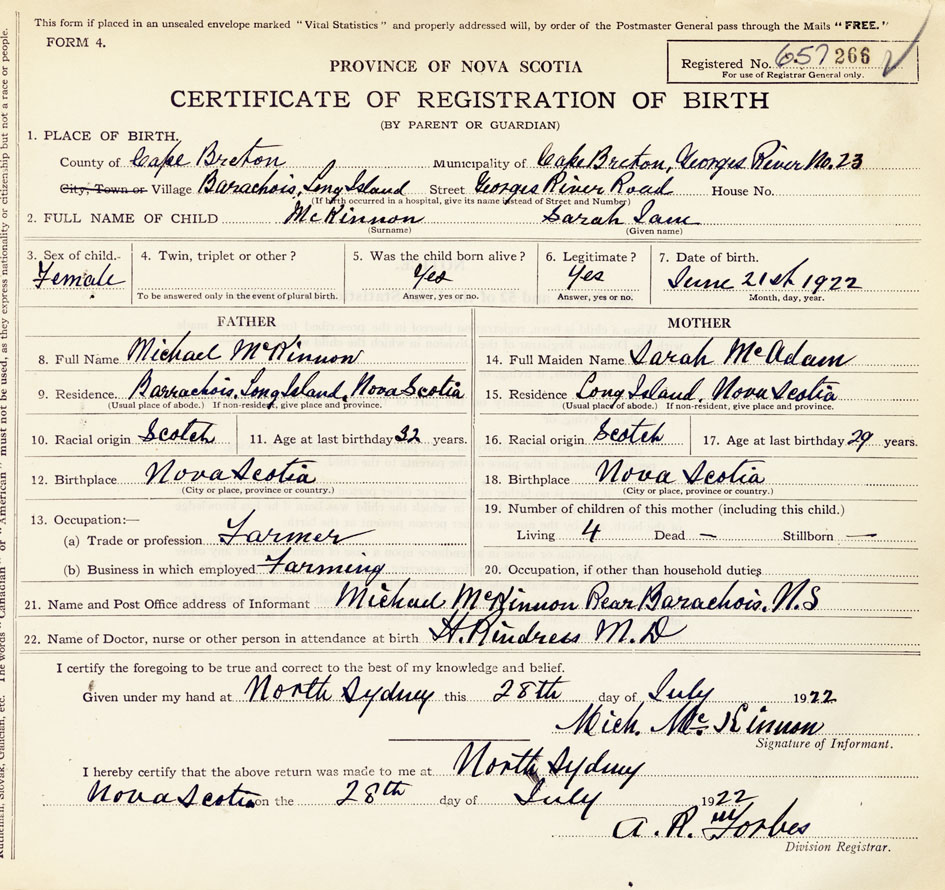 This form if placed in an unsealed envelope marked "Vital Statistics" and properly addressed will, by order of the Postmaster General pass through the Mails "FREE."
FORM 4.
Registered No. 657 266
For use of Registrar General only.
PROVINCE OF NOVA SCOTIA
CERTIFICATE OF REGISTRATION OF BIRTH
(BY PARENT OR GUARDIAN)
1. PLACE OF BIRTH.
County of Cape Breton Municipality of Cape Breton, Georges River No. 23
City, Town or Village Barachois, Long Island Street Georges River Road House No.
(If birth occurred in a hospital, give its name instead of Street and Number)
2. FULL NAME OF CHILD McKinnon Sarah
(Surname) (Given name)
3. Sex of child.- 4. Twin, triplet or other? 5. Was the child born alive? 6. Legitimate? 7. Date of birth.
Female Yes Yes June 21st 1922
To be answered only in the event of plural birth. Answer, yes or no. Answer, yes or no. Month, day, year.
FATHER MOTHER
8. Full Name Michael McKinnon 14. Full Maiden Name Sarah McAdam
9. Residence Barrachois, Long Island, Nova Scotia 15. Residence Long Island, Nova Scotia
(Usual place of abode.) If non-resident, give place and province. (Usual place of abode.) If non-resident, give place and province.
10. Racial origin Scotch 11. Age at last birthday 32 years. 16. Racial origin Scotch 17. Age at last birthday 29 years.
12. Birthplace Nova Scotia 18. Birthplace Nova Scotia
(City or place, province or country.) (City or place, province or country.)
13. Occupation:— 19. Number of children of this mother (including this child.)
(a) Trade or profession Farmer Living 4 Dead — Stillborn —
(b) Business in which employed Farming 20. Occupation, if other than household duties
21. Name and Post Office address of Informant Michael McKinnon Rear Barachois, N.S
22. Name of Doctor, nurse or other person in attendance at birth H. Rindress M.D
I certify the foregoing to be true and correct to the best of my knowledge and belief.
Given under my hand at North Sydney this 28th day of July 1922
Mich. McKinnon
Signature of Informant.
I hereby certify that the above return was made to me at North Sydney
Nova Scotia on the 28th day of July 1922
A. R. Forbes
Division Registrar.
Ruthenian, Slovak, Galician, etc. The words "Canadian" or "American" must not be used, as they express nationality or citizenship but not a race or people.